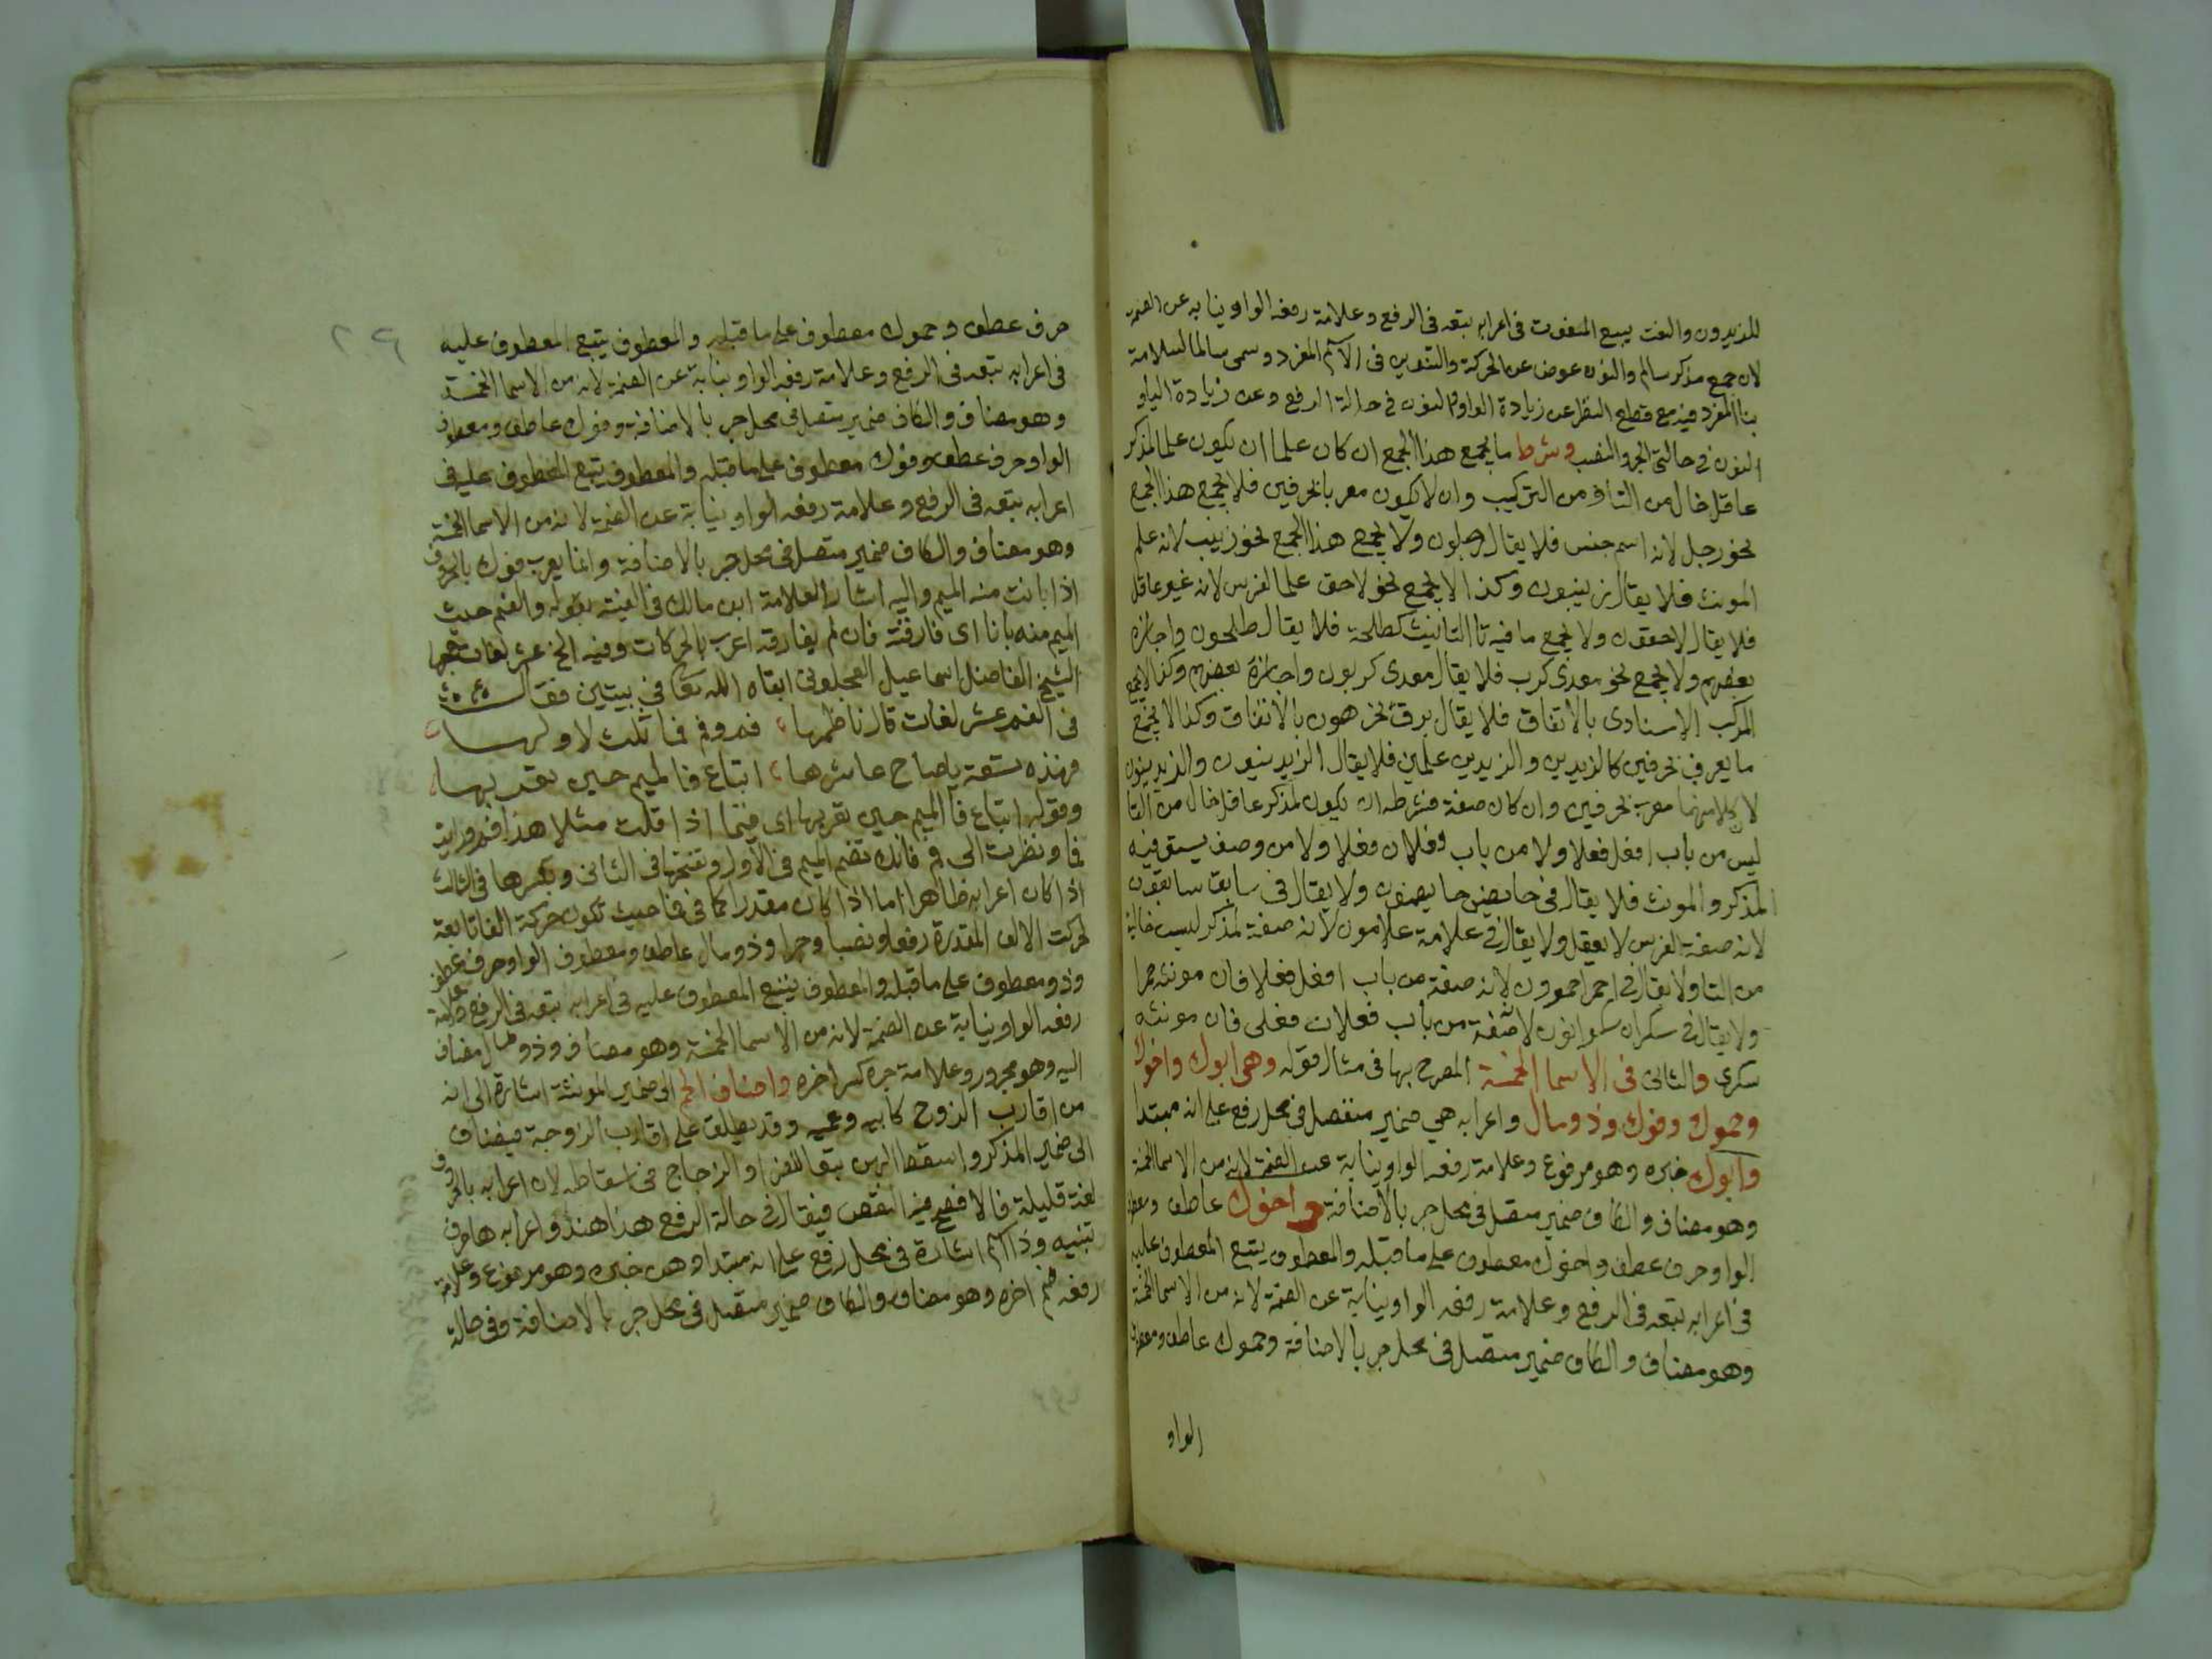 للمزيدون والنعت يتبع المنعوت في اعرابه تبعه في الرفع وعلامة رفعه الواو نيابة عن الضمة
لانه جمع مذكر سالم والنون عوض عن الحركة والتنوين في الاسم المفرد وسمى سالما لسلامة
بنا المفرد فيه مع قطع النظر عن زيادة الواو والنون في حالة الرفع وعن زيادة الياو
النون في حالتي الجر والنصب وشرط ما يجمع هذا الجمع ان كان علما ان يكون علما لمذكر
عاقل خال من التاو من التركيب وان لا يكون معربا بحرفين فلا يجمع هذا الجمع
نحو رجل لانه اسم جنس فلا يقال رجلون ولا يجمع هذا الجمع نحو زينب لانه علم
المونث فلا يقال زينبون وكذا لا يجمع نحو لاحق علما لفرس لانه غير عاقل
فلا يقال لاحقون ولا يجمع ما فيه تا التانيث كطلحة فلا يقال طلحون واجازه
بعضهم ولا يجمع نحو معدى كرب فلا يقال معدى كربون واجازه بعضهم وكذا لا يجمع
المركب الاسنادى بالاتفاق فلا يقال برق نحرهون بالاتفاق وكذا لا يجمع
ما يعرب بحرفين كالزيدين والزيدين علمين فلا يقال الزيدينون والزيدينون
لان كلا منهما معرب بحرفين وان كان صفة فشرطه ان يكون لمذكر عاقل خال من التا
ليس من باب افعل فعلا ولا من باب فعلان فعلا ولا من وصف يستوى فيه
المذكر والمونث فلا يقال في حايض حايضون ولا يقال في سابق سابقون
لانه صفة الفرس لا يعقل ولا يقال في علامة علامون لانه صفة لمذكر ليست خالية
من التا ولا يقال في احمر احمرون لانه صفة من باب افعل فعلا فان مونثه حمرا
ولا يقال في سكران سكرانون لانه صفة من باب فعلان فعلى فان مونثه
سكرى والثانى في الاسما الخمسة المصرح بها في مثال قوله وهى ابوك واخوك
وحموك وفوك وذو مال واعرابه هي ضمير منفصل في محل رفع على انه مبتدا
وابوك خبره وهو مرفوع وعلامة رفعه الواو نيابة عن الضمة لانه من الاسما الخمسة
وهو مضاف والكاف ضمير متصل في محل جر بالاضافة واخوك عاطف ومعطوف
الواو حرف عطف واخوك معطوف على ما قبله والمعطوف يتبع المعطوف عليه
في اعرابه تبعه في الرفع وعلامة رفعه الواو نيابة عن الضمة لانه من الاسما الخمسة
وهو مضاف والكاف ضمير متصل في محل جر بالاضافة وحموك عاطف ومعطوف
الواو
٢٩
حرف عطف وحموك معطوف على ما قبله والمعطوف يتبع المعطوف عليه
في اعرابه تبعه في الرفع وعلامة رفعه الواو نيابة عن الضمة لانه من الاسما الخمسة
وهو مضاف والكاف ضمير متصل في محل جر بالاضافة وفوك عاطف ومعطوف
الواو حرف عطف وفوك معطوف على ما قبله والمعطوف يتبع المعطوف عليه في
اعرابه تبعه في الرفع وعلامة رفعه الواو نيابة عن الضمة لانه من الاسما الخمسة
وهو مضاف والكاف ضمير متصل في محل جر بالاضافة وانما يعرب فوك بالحروف
اذا بانت منه الميم واليه اشار العلامة ابن مالك في الفيته بقوله والفم حيث
الميم منه بانا اى فارقته فان لم يفارقه اعرب بالحركات وفيه الخ عشر لغات
الشيخ الفاضل اسماعيل العجلونى ابقاه الله تعا في بيتين فقال
في الفم عشر لغات قال ناظمها فم وفم فما ثلث لاولها
فهذه تسعة يا صاح عاشرها اتباع فا لميم حين تقربها
وقوله اتباع فا الميم حين تقربها اى فيما اذا قلت مثلا هذا فم ورايت
فما ونظرت الى فم فانك تضم الميم في الاول وتفتحها في الثانى وتكسرها في الثالث
اذا كان اعرابه ظاهرا اما اذا كان مقدرا كما في فما حيث تكون حركة الفا تابعة
لحركت الالف المقدرة رفعا ونصبا وجرا وذو مال عاطف ومعطوف الواو حرف عطف
وذو معطوف على ما قبله والمعطوف يتبع المعطوف عليه في اعرابه تبعه في الرفع وعلامة
رفعه الواو نيابة عن الضمة لانه من الاسما الخمسة وهو مضاف وذو ومال مضاف
اليه وهو مجرور وعلامة جره كسر اخره واضاف الحم الى ضمير المونثة اشارة الى انه
من اقارب الزوج كابيه وعمه وقد يطلق على اقارب الزوجة فيضاف
الى ضمير المذكر واسقط الهن تبعا للفرا والزجاج في اسقاطه لان اعرابه بالحروف
لغة قليلة فالافصح فيه النقص فيقال في حالة الرفع هذا هنك واعرابه ها حرف
تنبيه وذا اسم اشارة في محل رفع على انه مبتدا وهن خبره وهو مرفوع وعلامة
رفعه ضم اخره وهو مضاف والكاف ضمير متصل في محل جر بالاضافة وفي حالة